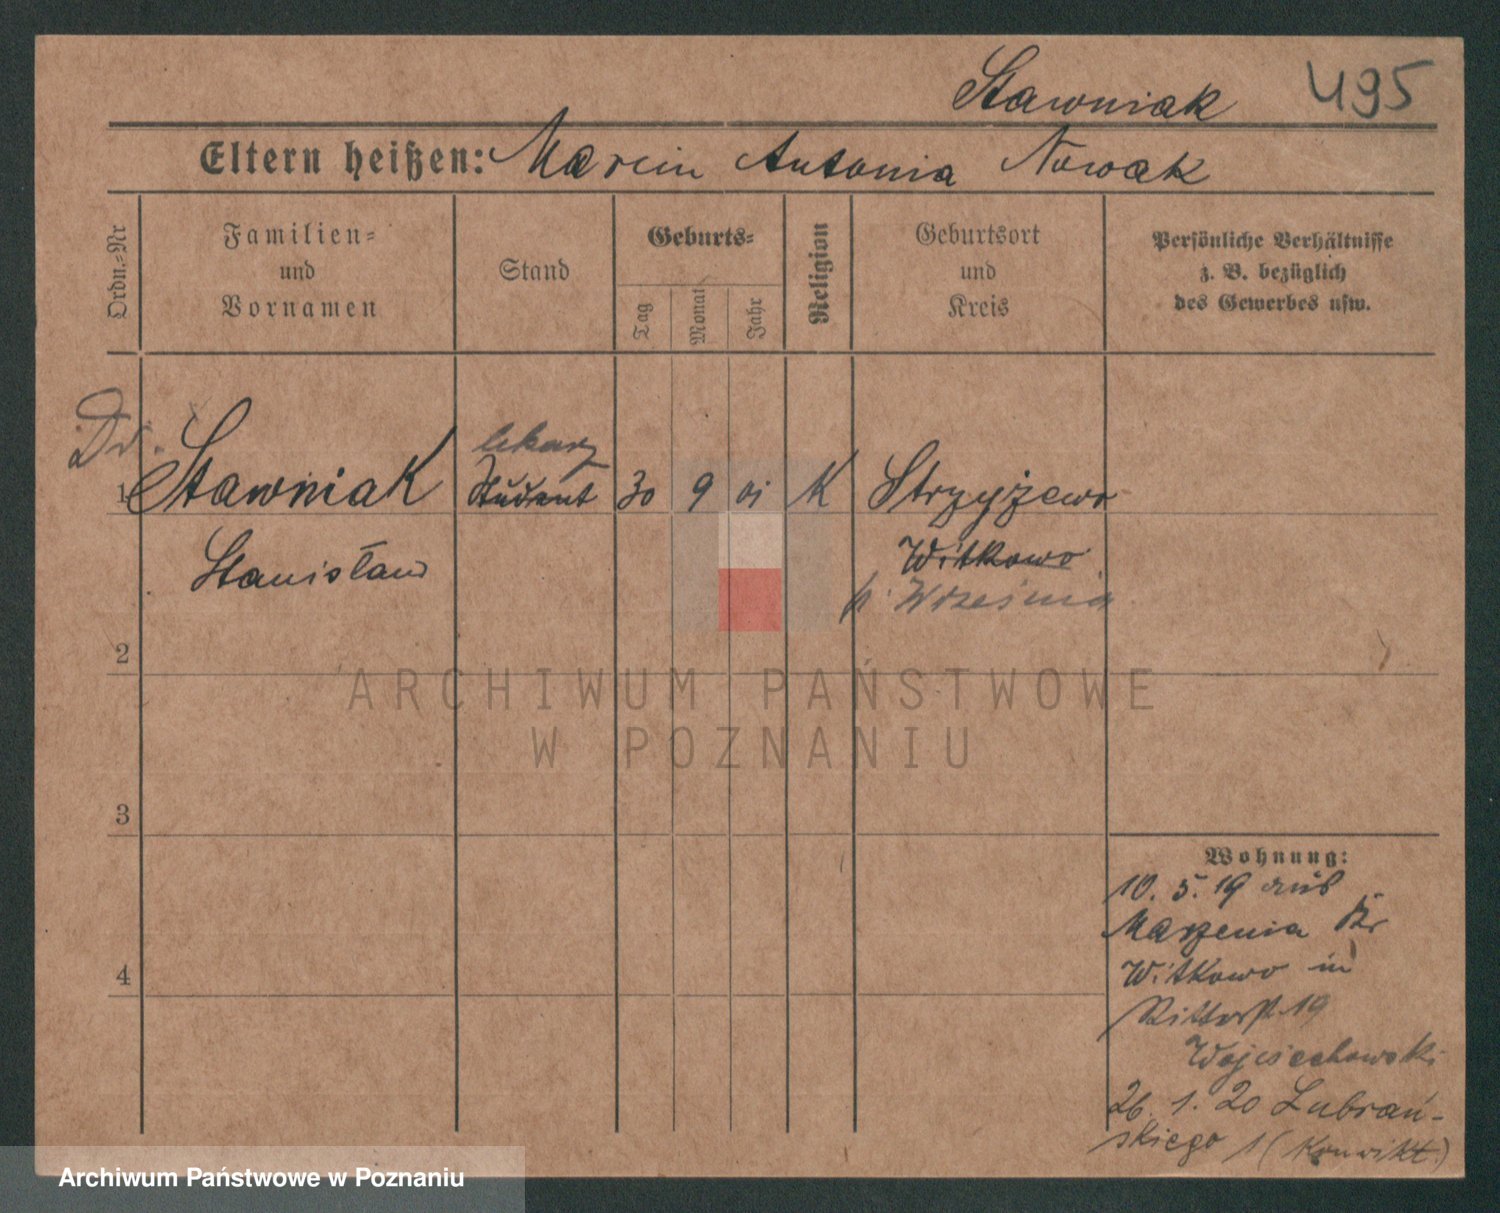 Stawniak 495
Eltern heißen: Marcin Antonia Nowak
Ordn.-Nr
Familien-
und
Vornamen
Stand
Geburts-
Tag
Monat
Jahr
Religion
Geburtsort
und
Kreis
Persönliche Verhältnisse
z. B. bezüglich
des Gewerbes usw.
Dr.
lekarz
1 Stawniak Student 30 9 01 K Strzyżewo
Stanisław
Witkowo
p. Września
2
ARCHIWUM PAŃSTWOWE
W POZNANIU
3
4
Wohnung:
10. 5. 19 aus
Marzenin Kr
Witkowo in
Ritterst. 19
Wojciechowski
26. 1. 20 Lubrań-
skiego 1 (Konwikt.)
Archiwum Państwowe w Poznaniu